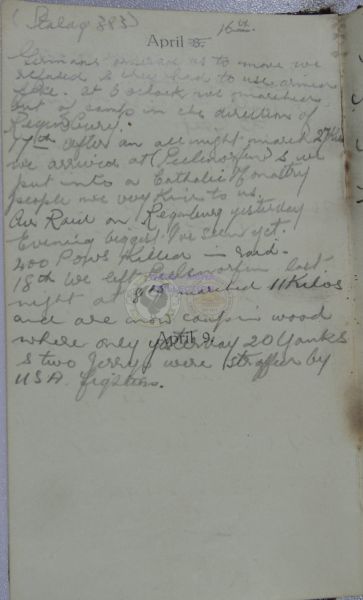 (Stalag 383)
16th
April 8.
Germans ordered us to move we
refused & they had to use armed
force. at 6 oclock we marched
out of camp in the direction of
Regensburg.
17th after an all night march 27 Kilos
we arrived at & we
put into a Catholic Monastry
people were very kind to us.
Air Raid on Regensburg yesterday
Evening biggest I've seen yet
400 POWs Killed in raid.
18th We left last
night at 8 15 marched 11 Kilos
and are now camp in wood
where only yesterday 20 Yanks
April 9.
& two Jerrys were straffed by
USA. fighters.